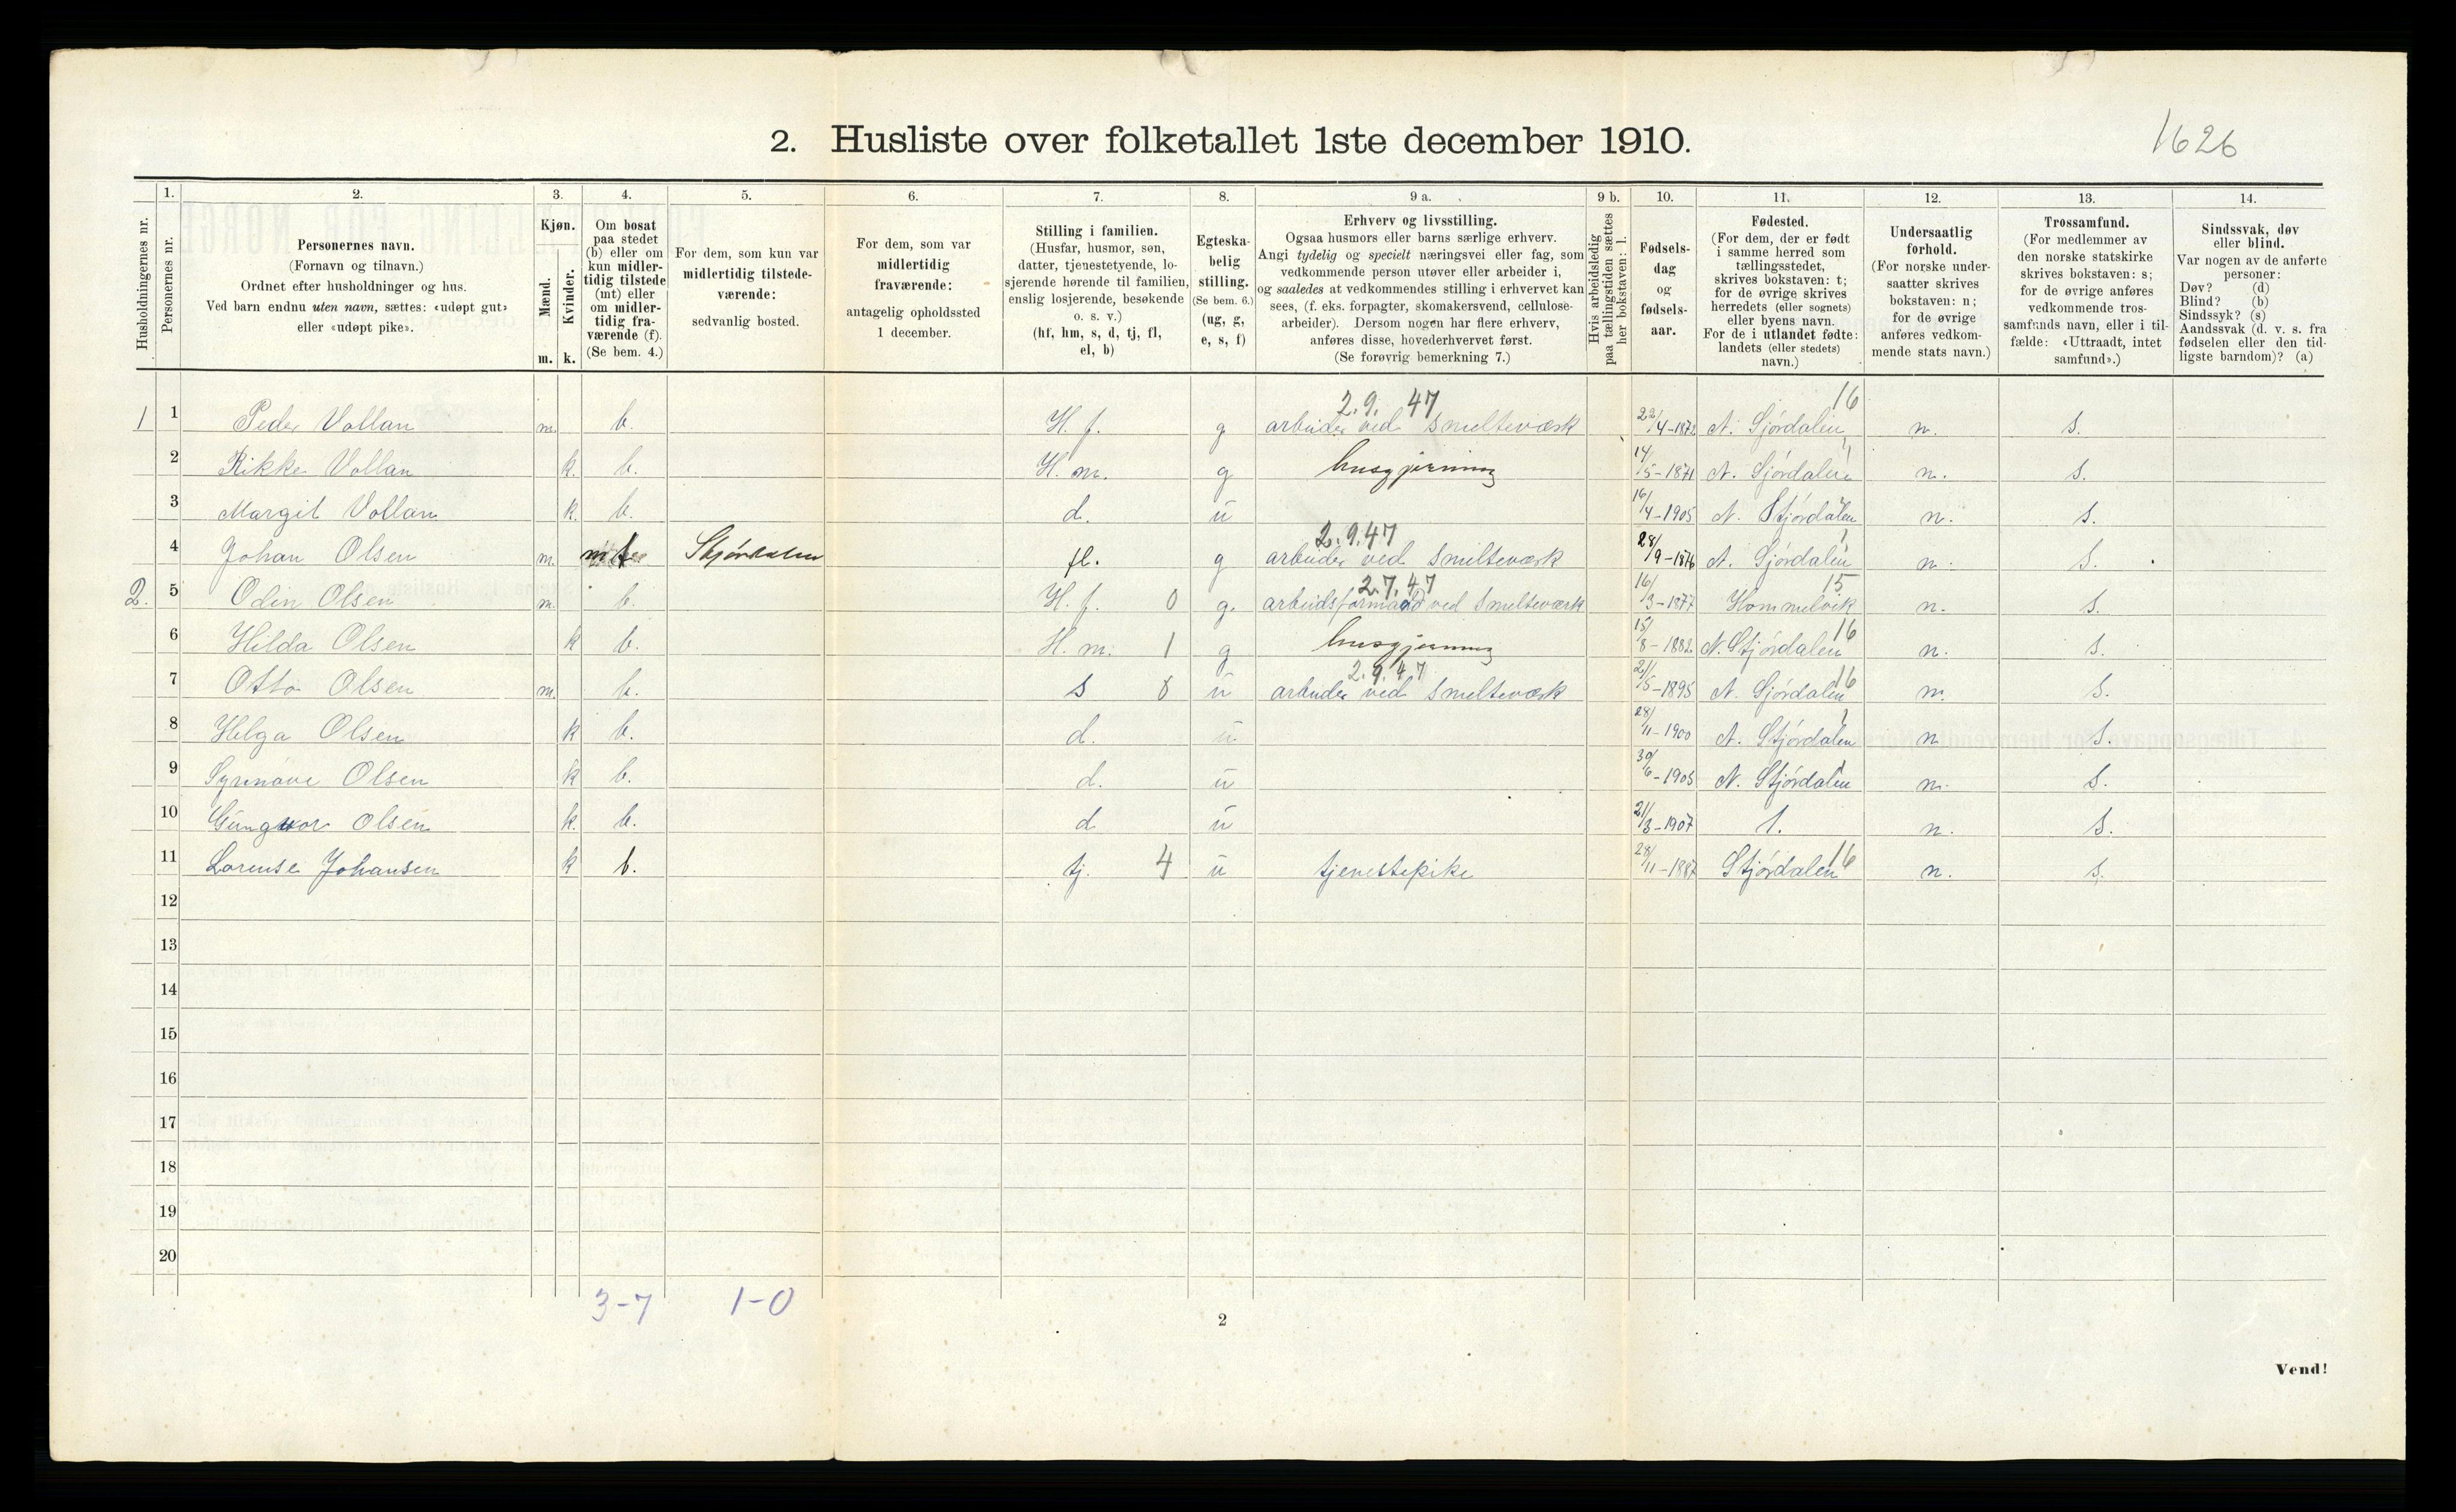 2. Husliste over folketallet 1ste december 1910.
1626
Husholdningernes nr.
1.
Personernes nr.
2.
Personernes navn.
(Fornavn og tilnavn.)
Ordnet efter husholdninger og hus.
Ved barn endnu uten navn, sættes: «udøpt gut»
eller «udøpt pike».
3.
Kjøn.
Mænd.
Kvinder.
m. k.
4.
Om bosat
paa stedet
(b) eller om
kun midler-
tidig tilstede
(mt) eller
om midler-
tidig fra-
værende (f).
(Se bem. 4.)
5.
For dem, som kun var
midlertidig tilstede-
værende:
sedvanlig bosted.
6.
For dem, som var
midlertidig
fraværende:
antagelig opholdssted
1 december.
7.
Stilling i familien.
(Husfar, husmor, søn,
datter, tjenestetyende, lo-
sjerende hørende til familien,
enslig losjerende, besøkende
o. s. v.)
(hf, hm, s, d, tj, fl,
el, b)
8.
Egteska-
belig
stilling.
(Se bem. 6.)
(ug, g,
e, s, f)
9 a.
Erhverv og livsstilling.
Ogsaa husmors eller barns særlige erhverv.
Angi tydelig og specielt næringsvei eller fag, som
vedkommende person utøver eller arbeider i,
og saaledes at vedkommendes stilling i erhvervet kan
sees, (f. eks. forpagter, skomakersvend, cellulose-
arbeider). Dersom nogen har flere erhverv,
anføres disse, hovederhvervet først.
(Se forøvrig bemerkning 7.)
9 b.
Hvis arbeidsledig
paa tællingstiden sættes
her bokstaven: l.
10.
Fødsels-
dag
og
fødsels-
aar.
11.
Fødested.
(For dem, der er født
i samme herred som
tællingsstedet,
skrives bokstaven: t;
for de øvrige skrives
herredets (eller sognets)
eller byens navn.
For de i utlandet fødte:
landets (eller stedets)
navn.)
12.
Undersaatlig
forhold.
(For norske under-
saatter skrives
bokstaven: n;
for de øvrige
anføres vedkom-
mende stats navn.)
13.
Trossamfund.
(For medlemmer av
den norske statskirke
skrives bokstaven: s;
for de øvrige anføres
vedkommende tros-
samfunds navn, eller i til-
fælde: «Uttraadt, intet
samfund».)
14.
Sindssvak, døv
eller blind.
Var nogen av de anførte
personer:
Døv? (d)
Blind? (b)
Sindssyk? (s)
Aandssvak (d. v. s. fra
fødselen eller den tid-
ligste barndom)? (a)
2.9. 47 16
1 1 Peder Vollan m. b. H. f. g arbeider ved smelteværk 22/4-1872 N. Sjórdalen n. s.
2 Rikke Vollan k. b. H. m. g husgjerning 14/5-1871 N. Sjórdalen n. s.
3 Margit Vollan k. b. d. ü 16/4-1905 N. Stjórdalen n. s.
2.9.47
4 Johan Olsen m. mt Stjórdalen fl. g arbeider ved smelteværk 28/9-1876 N. Sjórdalen n. s.
2.7.47 15
2. 5 Odin Olsen m. b. H. f. 0 g. arbeidsformand ved smelteværk 16/3-1877 Hommelvik n. s.
16
6 Hilda Olsen k b. H. m. 1 g husgjerning 15/8-1882 N. Stjórdalen n. s.
2.9.47 16
7 Otto Olsen m. b. s 8 ü arbeider ved smelteværk 21/5-1895 N. Sjórdalen n. s.
8 Helga Olsen k b. d. ü 28/11-1900 N. Stjórdalen n s.
9 Synnöve Olsen k b. d. ü 30/6-1905 N. Stjórdalen n. s.
10 Gungvor Olsen k. b. d ü 21/3-1907 t. n. s.
11 Lorense Johansen k b. tj. 4 ü tjenestepike 28/11-1887 Stjórdalen 16 n. s.
12
13
14
15
16
17
18
19
20
3-7 1-0
2
Vend!